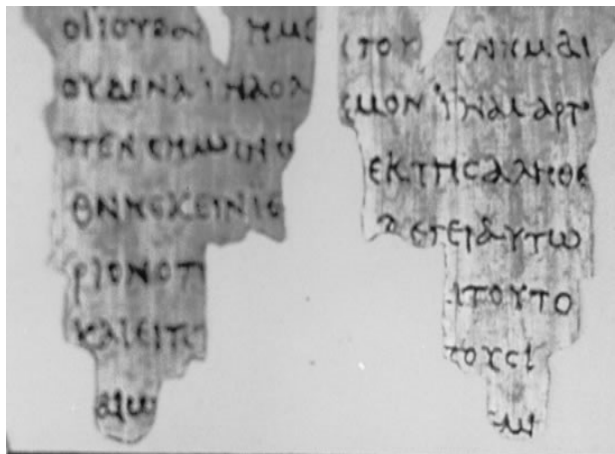 ΟΙΙΟΥΔΑΙ ΗΜΕ
ΟΥΔΕΝΑΪΝΑΟΛ
ΠΕΝϹΗΜΑΙΝΩ
ΘΝΗϹΚΕΙΝΙϹ
ΡΙΟΝΟΠ
ΚΑΙΕΙΠ
ΑΙΩ
ΤΟΥ ΓΕΝΝΗΜΑΙ
ϹΜΟΝΪΝΑΜΑΡΤΥ
ΕΚΤΗϹΑΛΗΘΕ
ΛΕΓΕΙΑΥΤΩ
ΙΤΟΥΤΟ
ΤΟΥϹΙ
ΜΙ